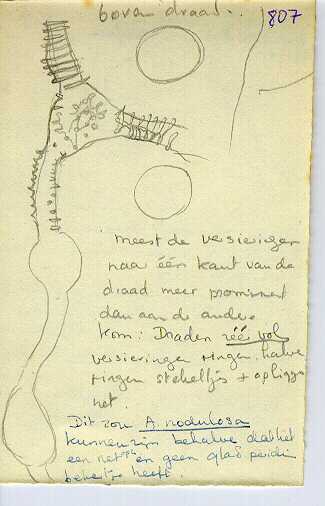 boven draad..
807
meest de versieringen
naar één kant van de
draad meer prominent
dan aan de andere
kom: Draden zéé vol
versieringen ringen, halve
ringen stekeltjes + opliggend
net.
Dit zou A. nodulosa
kunnen zijn behalve dat het
een net en geen glad peridie
behertje heeft.